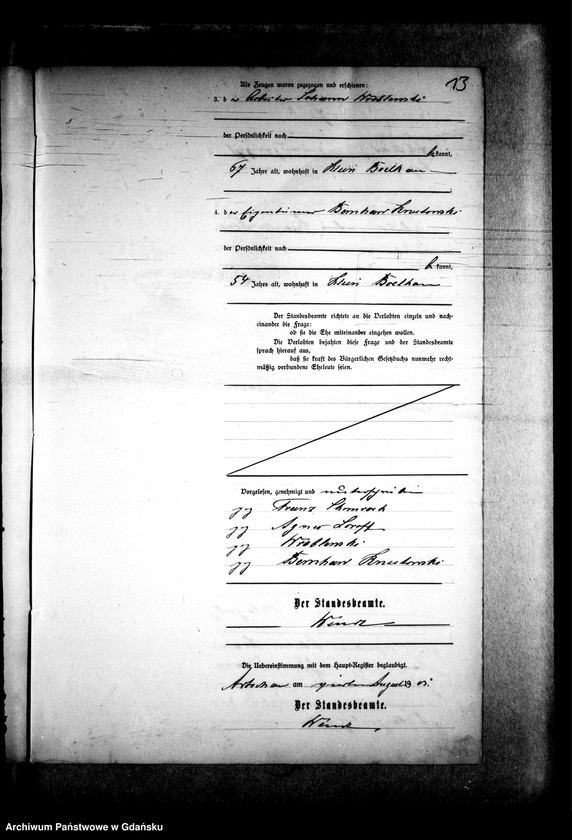 13
Als Zeugen waren zugezogen und erschienen:
3. der Arbeiter Johann Wroblewski
der Persönlichkeit nach
bekannt,
67 Jahre alt, wohnhaft in Klein Boelkau
;
4. der Eigentümer Bernhard
der Persönlichkeit nach
bekannt,
54 Jahre alt, wohnhaft in Klein Boelkau
Der Standesbeamte richtete an die Verlobten einzeln und nach-
einander die Frage:
ob sie die Ehe miteinander eingehen wollen.
Die Verlobten bejahten diese Frage und der Standesbeamte
sprach hierauf aus,
daß sie kraft des Bürgerlichen Gesetzbuchs nunmehr recht-
mäßig verbundene Eheleute seien.
Vorgelesen, genehmigt und unterschrieben
gz Franz
gz Agnes
gz Wroblewski
gz Bernhard
Der Standesbeamte.
Die Uebereinstimmung mit dem Haupt-Register beglaubigt.
am August 19
Der Standesbeamte.
Archiwum Państwowe w Gdańsku